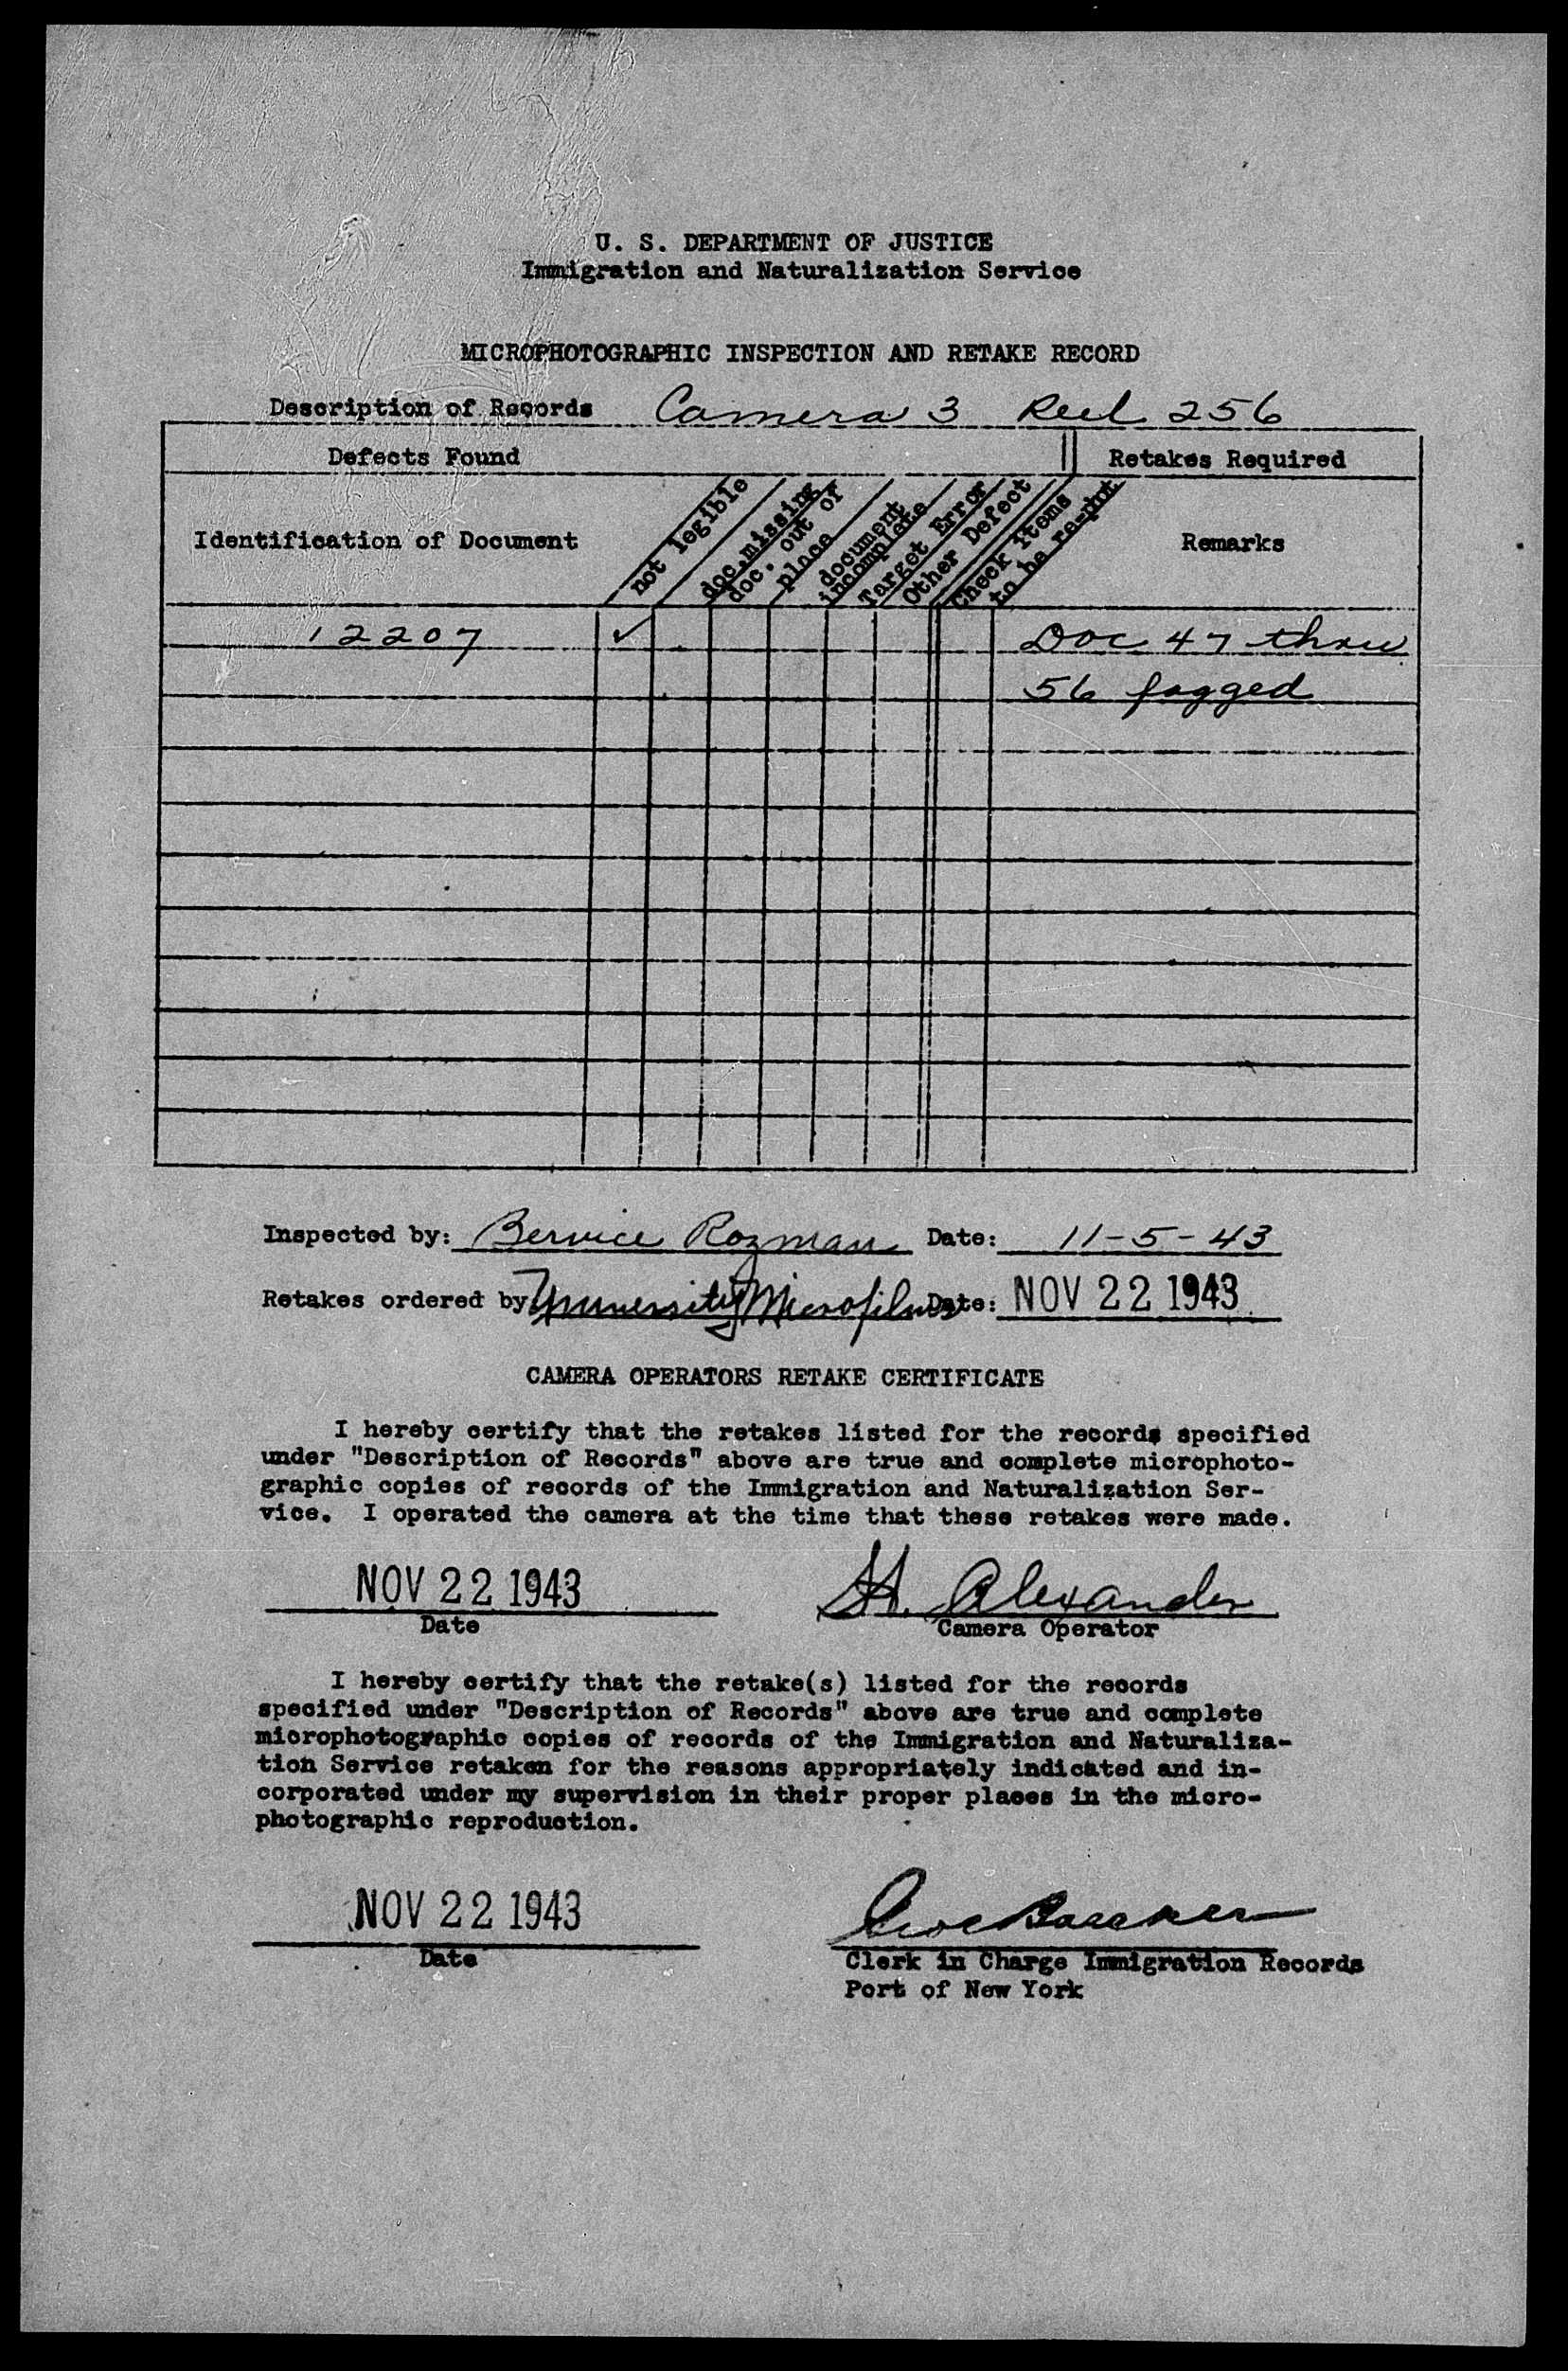 U. S. DEPARTMENT OF JUSTICE
Immigration and Naturalization Service
MICROPHOTOGRAPHIC INSPECTION AND RETAKE RECORD
Description of Records Camera 3 Reel 256
Defects Found Retakes Required
Identification of Document
not legible
doc. missing
doc. out of
place
document
incomplete
Target Error
Other Defect
Check items
to be re-phot
Remarks
12207 ✓ Doc 47 thru
56 fogged
Inspected by: Bernice Rozman Date: 11-5-43
Retakes ordered by University Microfilms Date: NOV 22 1943
CAMERA OPERATORS RETAKE CERTIFICATE
I hereby certify that the retakes listed for the records specified
under "Description of Records" above are true and complete microphoto-
graphic copies of records of the Immigration and Naturalization Ser-
vice. I operated the camera at the time that these retakes were made.
NOV 22 1943 H. Alexander
Date Camera Operator
I hereby certify that the retake(s) listed for the records
specified under "Description of Records" above are true and complete
microphotographic copies of records of the Immigration and Naturaliza-
tion Service retaken for the reasons appropriately indicated and in-
corporated under my supervision in their proper places in the micro-
photographic reproduction.
NOV 22 1943
Date Clerk in Charge Immigration Records
Port of New York